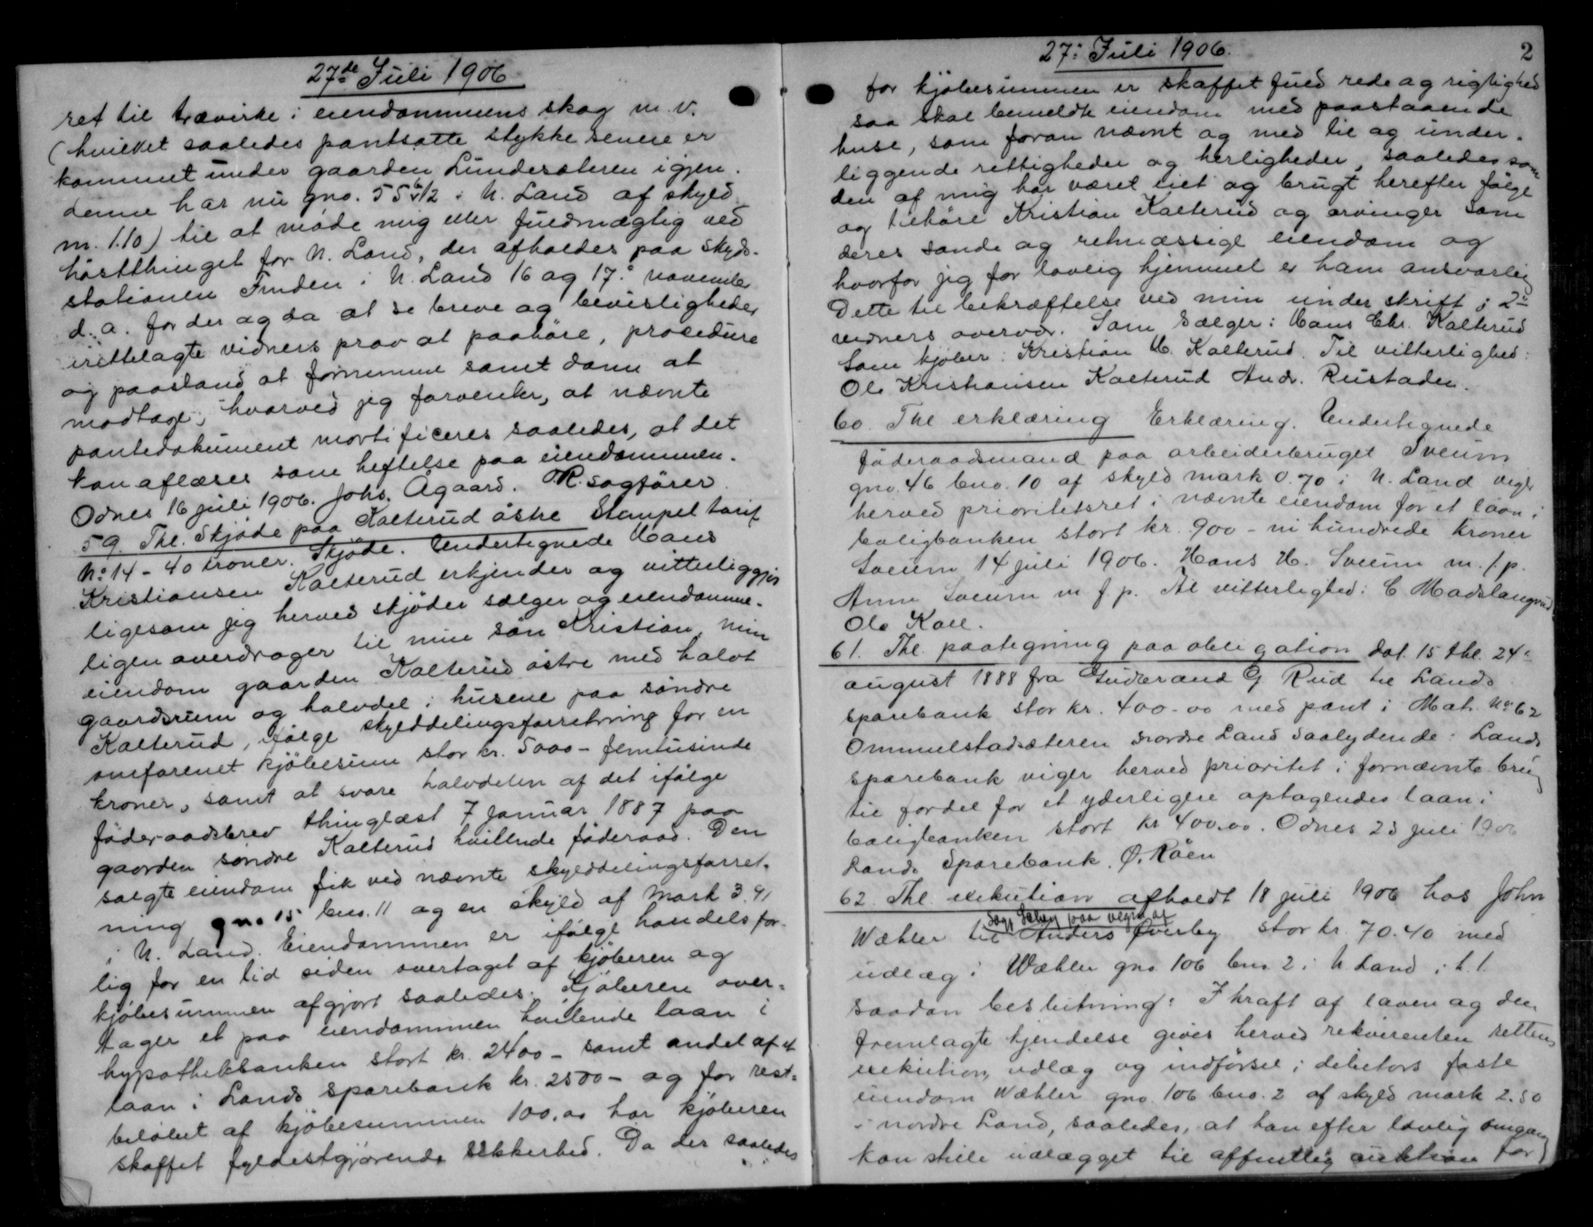 27de Juli 1906
ret til trævirke i eiendommens skog m. v.
(hvilket saaledes pantsatte stykke senere er
kommet under gaarden Lundersæteren igjen.
denne har nu gno. 55 b/2 i N. Land af skyld
m. 1.10) til at møde mig eller fuldmægtig ved
høstthinget for N. Land, der afholdes paa skyds-
stationen Finden i N. Land 16 og 17: november
d. a. for der og da at se breve og bevisligheder
irettelagte vidners prov at paahöre, procedure
og paastand at fornemme samt dom at
modtage, hvorved jeg forventer, at nævnte
pantedokument mortificeres saaledes, at det
kan aflæses som heftelse paa eiendommen.
Odnes 16 juli 1906. Johs. Agaard. O.R.sagförer.
59. Thl. Skjöde paa Kalterud östre Stempel tarif
No 14 - 40 kroner. Skjöde. Undertegnede Hans
Kristiansen Kalterud erkjender og vitterliggjör
ligesom jeg herved skjöder sælger og eiendomme-
ligen overdrager til min sön Kristian min
eiendom gaarden Kalterud östre med halvt
gaardsrum og halvdel i husene paa söndre
Kalterud, ifölge skylddelingsforretning for en
omforenet kjöbesum stor kr. 5000 - femtusinde
kroner, samt at svare halvdelen af det ifölge
föderaadsbrev thinglæst 7 Januar 1887 paa
gaarden söndre Kalterud hvillende föderaad. Den
solgte eiendom fik ved nævnte skylddelingsforret-
ning gno 15 bno. 11 og en skyld af Mark 3.41
i N. Land. Eiendommen er ifölge handels for-
lig for en tid siden overtaget af kjöberen og
kjöbesummen afgjort saaledes: Kjöberen over-
tager et paa eiendommen hvilende laan i
hypothekbanken stort kr. 2400 - samt andel af et
laan i Lands sparebank kr. 2500 - og for rest-
belöbet af kjöbesummen 100.00 har kjöberen
skaffet fyldestgjörende sikkerhed. Da der saaledes
27: Juli 1906.
2
for kjöbesummen er skaffet fuld rede og rigtighed
saa skal bemeldte eiendom med paastaaende
huse, som foran nævnt og med til og under-
liggende rettigheder og herligheder, saaledes som
den af mig har været eiet og brugt herefter fölge
og tilhöre Kristian Kalterud og arvinger som
deres sande og retmæssige eiendom og
hvorfor jeg for lovlig hjemmel er ham ansvarlig
Dette til bekræftelse ved min underskrift i 2de
vidners overvær. Som sælger: Hans Chr. Kalterud
Som kjöber: Kristian H. Kalterud. Til vitterlighed:
Ole Kristiansen Kalterud Andr. Rustaden.
60. Thl erklæring Erklæring. Undertegnede
föderaadsmand paa arbeiderbruget Sveum
gno. 46 bno. 10 af skyld mark 0.70 i N. Land viger
herved prioritetsret i nævnte eiendom for et laan i
boligbanken stort kr. 900 - ni hundrede kroner
Sveum 14 juli 1906. Hans H. Sveum m. f. p.
Anne Sveum m f. p. Til vitterlighed: C Madslangrud
Ole Koll.
61. Thl. paategning paa obligation dat. 15 thl. 24:
august 1888 fra Gudbrand G Rud til Lands
sparebank stor kr. 400-00 med pant i Mat. No 62
Ommelstadsæteren nordre Land saalydende: Lands
sparebank viger herved prioritet i fornævnte brug
til fordel for et yderligere optagendes laan i
boligbanken stort kr 400.00. Odnes 23 juli 1906
Lands Sparebank. Ø. Röen
62. Thl exekution afholdt 18 juli 1906 hos John
Wæhler til Anders Överby stor kr. 70.40 med
paa vegne af
udlæg i Wæhler gno 106 bno 2 i N Land, i. t.
saadan beslutning: I kraft af loven og den
fremlagte kjendelse gives herved rekvirenten rettens
exekution, udlæg og indförsel i debitors faste
eiendom Wæhler gno. 106 bno. 2 af skyld mark 2.50
i nordre Land, saaledes, at han efter lovlig omgang
kan stille udlægget til offentlig auktion for